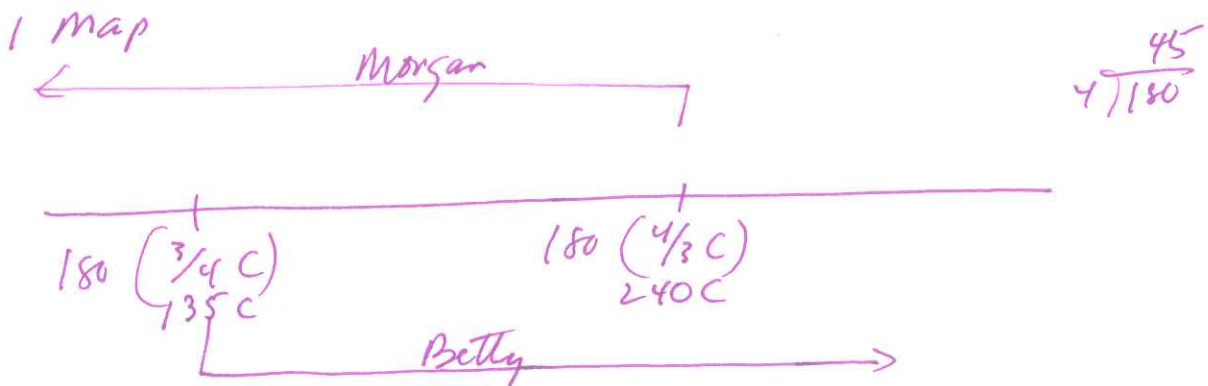 1 Map
Morgan
45
4)180
180 (3/4 C)
135 C
180 (4/3 C)
240 C
Betty